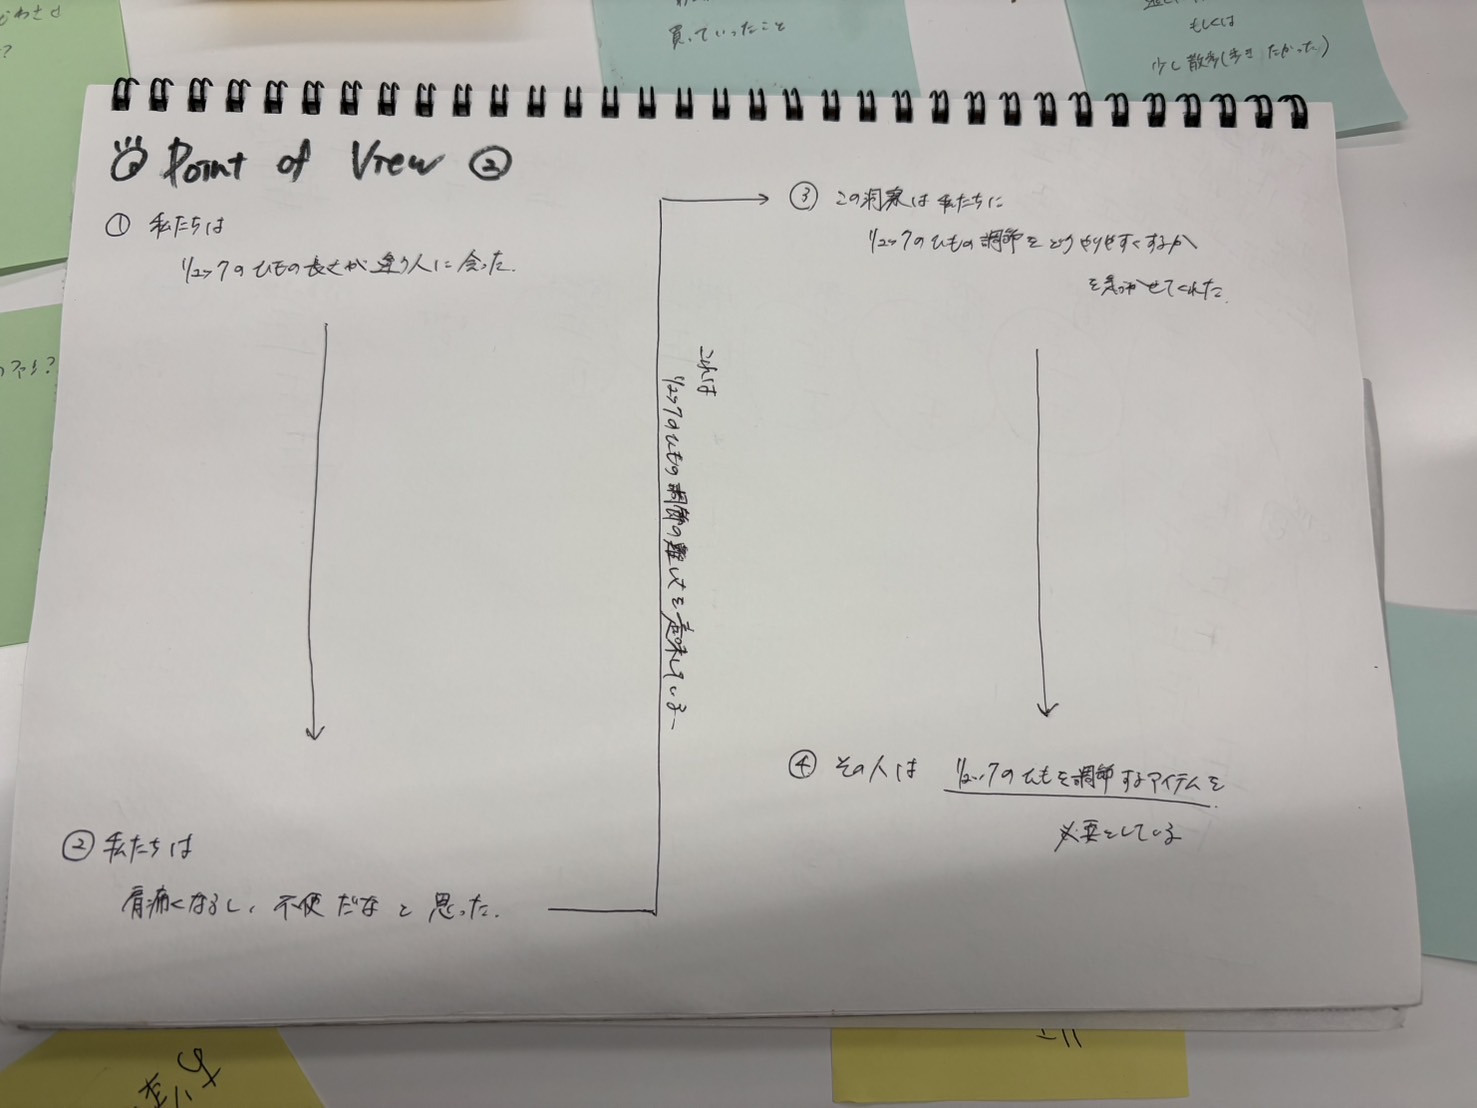 買っていったこと
もしくは
少し散歩(歩きたかった)
Point of View ②
① 私たちは
リュックのひもの長さが違う人に会った.
② 私たちは
肩痛くなるし、不便だなと思った.
これは
リュックのひもの調節の難しさを意味している
③ この洞察は私たちに
リュックのひもの調節をどうやりやすくするか
を気づかせてくれた.
④ その人は リュックのひもを調節するアイテムを
必要としている